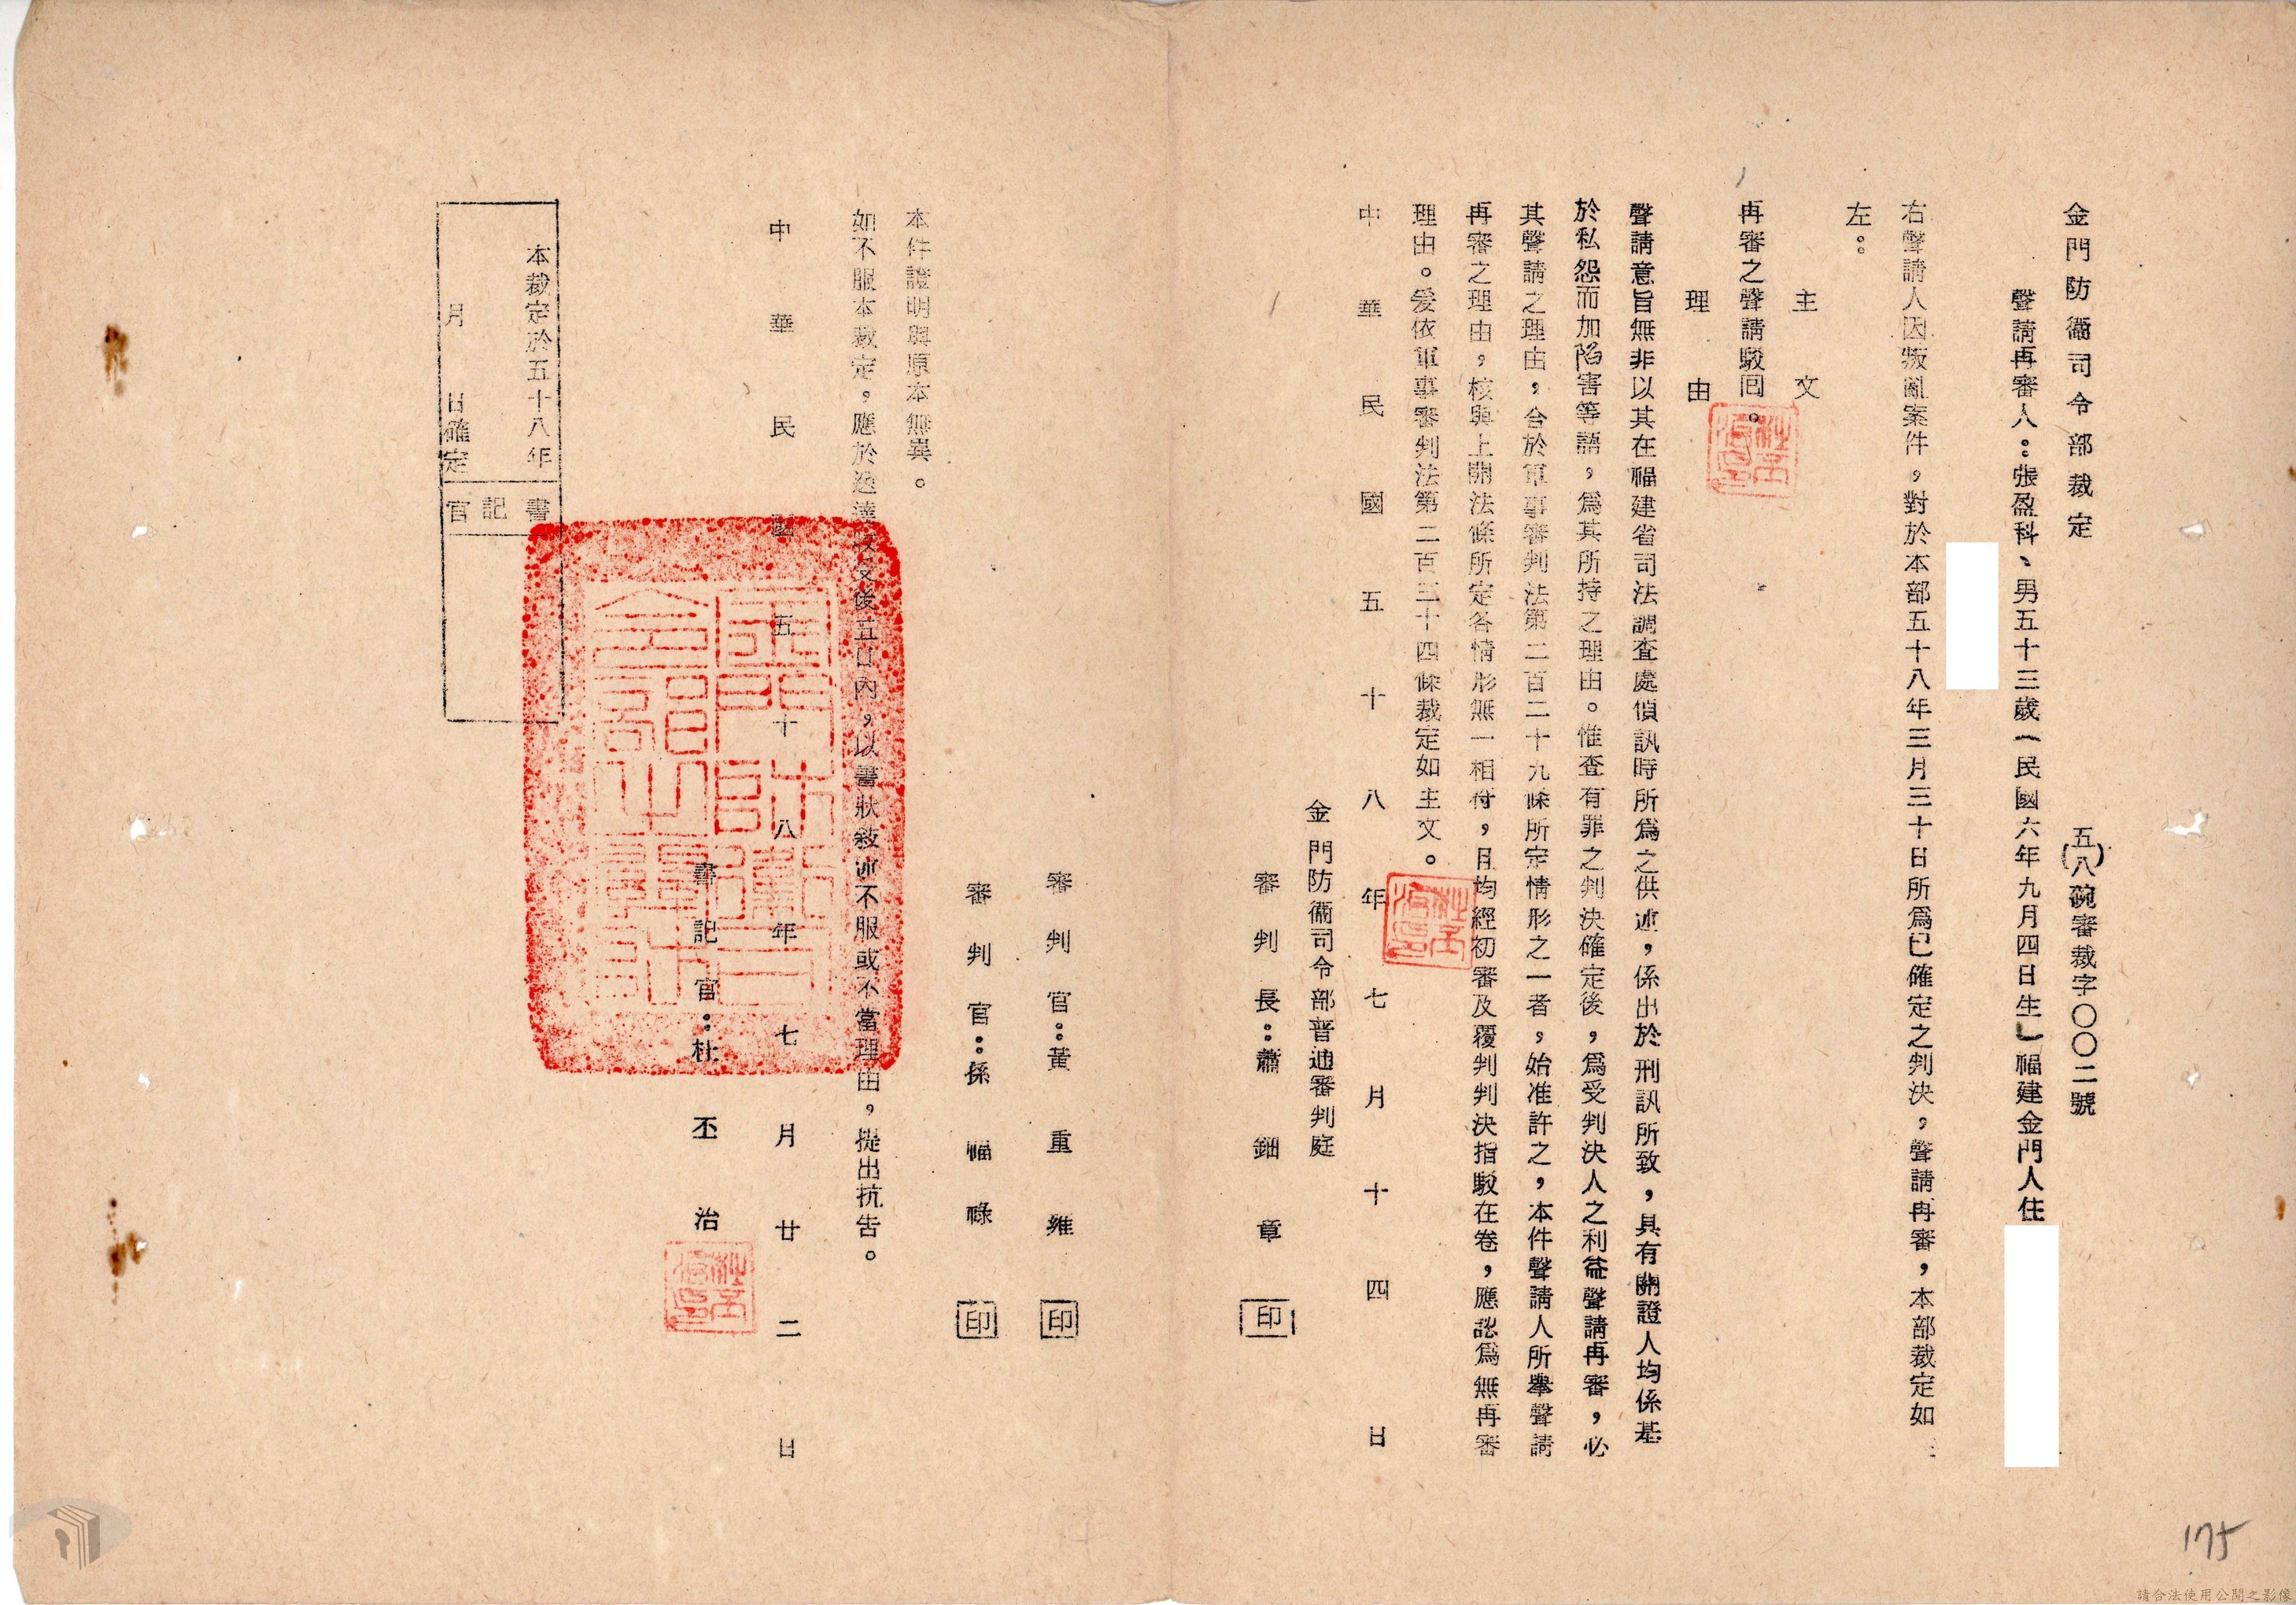 金門防衛司令部裁定
(五八)琬審裁字〇〇二號
聲請再審人：張盈科、男五十三歲（民國六年九月四日生）福建金門人住
右聲請人因叛亂案件，對於本部五十八年三月三十日所爲已確定之判決，聲請再審，本部裁定如
左：
主文
再審之聲請駁回。
理由
聲請意旨無非以其在福建省司法調查處偵訊時所爲之供述，係出於刑訊所致，具有關證人均係基
於私怨而加陷害等語，爲其所持之理由。惟查有罪之判決確定後，爲受判決人之利益聲請再審，必
其聲請之理由，合於軍事審判法第二百二十九條所定情形之一者，始准許之，本件聲請人所舉聲請
再審之理由，核與上開法條所定各情形無一相符，且均經初審及覆判判決指駁在卷，應認爲無再審
理由。爰依軍事審判法第二百三十四條裁定如主文。
中華民國五十八年七月十四日
金門防衛司令部普通審判庭
審判長：蕭鈿章 印
審判官：黃重維 印
審判官：孫福祿 印
本件證明與原本無異。
如不服本裁定，應於送達收受後五日內，以書狀敘述不服或不當理由，提出抗告。
中華民國五十八年七月廿二日
書記官：杜丕治
本裁定於五十八年
月 日確定
書記官
175
請合法使用公開之影像